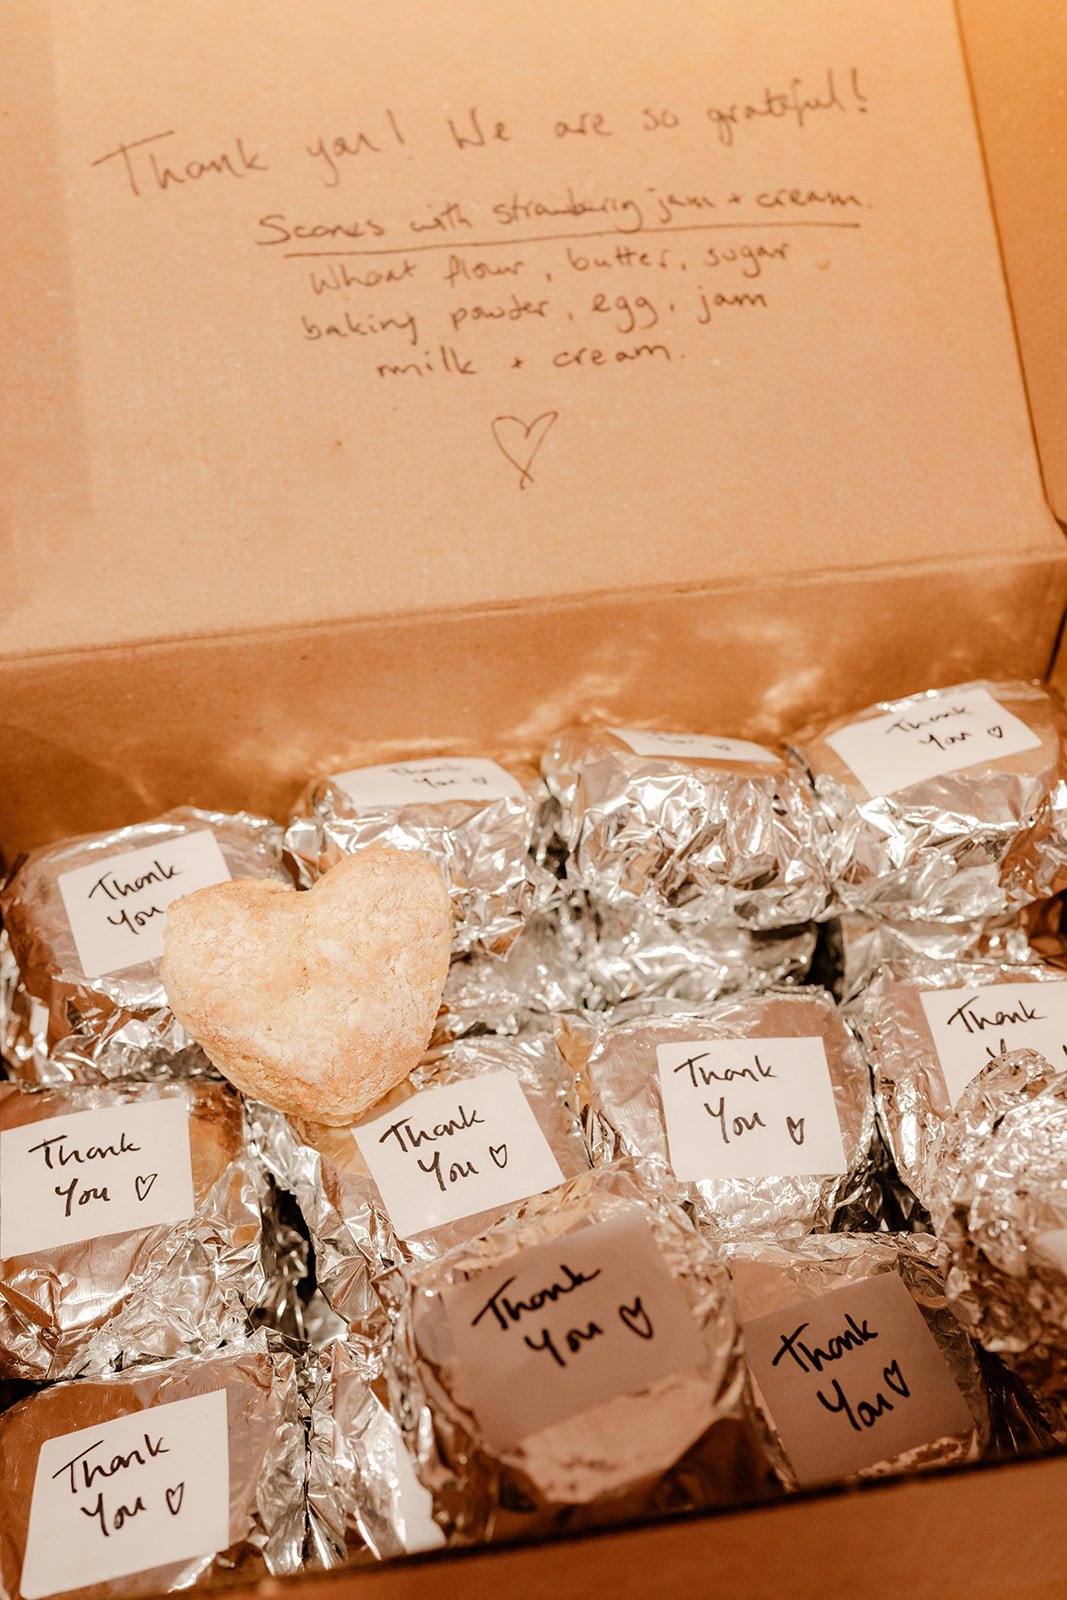 Thank you! We are so grateful!
Scones with strawberry jam + cream.
Wheat flour, butter, sugar
baking powder, egg, jam
milk + cream.
Thank
You
Thank
You
Thank
You
Thank
You
Thank
You
Thank
You
Thank
You
Thank
Thank
You
Thank
You
Thank
You